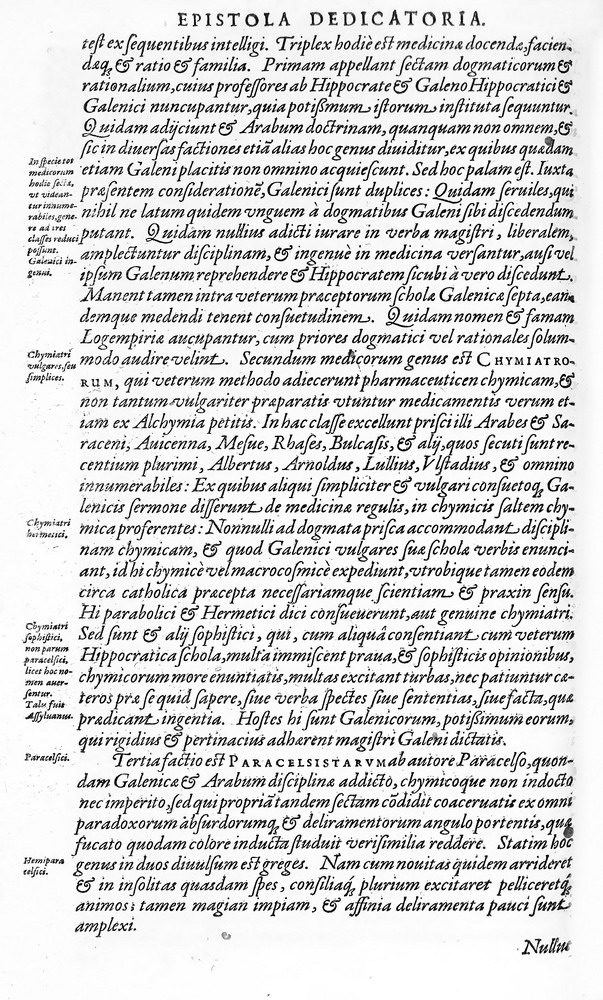 EPISTOLA DEDICATORIA.
test ex sequentibus intelligi. Triplex hodiè est medicinæ docendæ, facien-
dæq; & ratio & familia. Primam appellant sectam dogmaticorum &
rationalium, cuius professores ab Hippocrate & Galeno Hippocratici &
Galenici nuncupantur, quia potißimum istorum instituta sequuntur.
Quidam adijciunt & Arabum doctrinam, quanquam non omnem, &
sic in diuersas factiones etiā alias hoc genus diuiditur, ex quibus quædam
etiam Galeni placitis non omnino acquiescunt. Sed hoc palam est. Iuxta
præsentem considerationē, Galenici sunt duplices: Quidam seruiles, qui
nihil ne latum quidem vnguem à dogmatibus Galeni sibi discedendum
putant. Quidam nullius adicti iurare in verba magistri, liberalem,
amplectuntur disciplinam, & ingenuè in medicina versantur, ausi vel
ipsum Galenum reprehendere & Hippocratem sicubi à vero discedunt.
Manent tamen intra veterum præceptorum scholæ Galenicæ septa, ean-
demque medendi tenent consuetudinem. Quidam nomen & famam
Logempiriæ aucupantur, cum priores dogmatici vel rationales solum-
modo audire velint. Secundum medicorum genus est CHYMIATRO-
RUM, qui veterum methodo adiecerunt pharmaceuticen chymicam, &
non tantum vulgariter præparatis vtuntur medicamentis verum et-
iam ex Alchymia petitis. In hac classe excellunt prisci illi Arabes & Sa-
raceni, Auicenna, Mesue, Rhases, Bulcasis, & alij, quos secuti sunt re-
centium plurimi, Albertus, Arnoldus, Lullius, Vlstadius, & omnino
innumerabiles: Ex quibus aliqui simpliciter & vulgari consuetoq; Ga-
lenicis sermone disserunt de medicinæ regulis, in chymicis saltem chy-
mica proferentes: Nonnulli ad dogmata prisca accommodant discipli-
nam chymicam, & quod Galenici vulgares suæ scholæ verbis enunci-
ant, id hi chymicè vel macrocosmicè expediunt, vtrobique tamen eodem
circa catholica præcepta necessariamque scientiam & praxin sensu.
Hi parabolici & Hermetici dici consueuerunt, aut genuine chymiatri.
Sed sunt & alij sophistici, qui, cum aliquâ consentiant cum veterum
Hippocratica schola, multa immiscent praua, & sophisticis opinionibus,
chymicorum more enuntiatis, multas excitant turbas, nec patiuntur cæ-
teros præ se quid sapere, siue verba spectes siue sententias, siue facta, quæ
prædicant ingentia. Hostes hi sunt Galenicorum, potißimum eorum,
qui rigidius & pertinacius adhærent magistri Galeni dictatis.
Tertia factio est PARACELSISTARVM ab autore Paracelso, quon-
dam Galenicæ & Arabum disciplinæ addicto, chymicoque non indocto
nec imperito, sed qui propriā tandem sectam cōdidit coaceruatis ex omni
paradoxorum absurdorumq; & deliramentorum angulo portentis, quæ
fucato quodam colore inducta studuit verisimilia reddere. Statim hoc
genus in duos diuulsum est greges. Nam cum nouitas quidem arrideret
& in insolitas quasdam spes, consiliaq; plurium excitaret pelliceretq;
animos; tamen magian impiam, & affinia deliramenta pauci sunt
amplexi.
Nullius
In specie tot
medicorum
hodie sectæ,
vt videan-
tur innume-
rabiles, gene-
re ad tres
classes reduci
possunt.
Galenici in-
genui.
Chymiatri
vulgares, seu
simplices.
Chymiatri
hermetici.
Chymiatri
sophistici,
non parum
paracelsici,
licet hoc no-
men auer-
sentur.
Talis fuit
Assyluanus.
Paracelsici.
Hemipara
celsici.